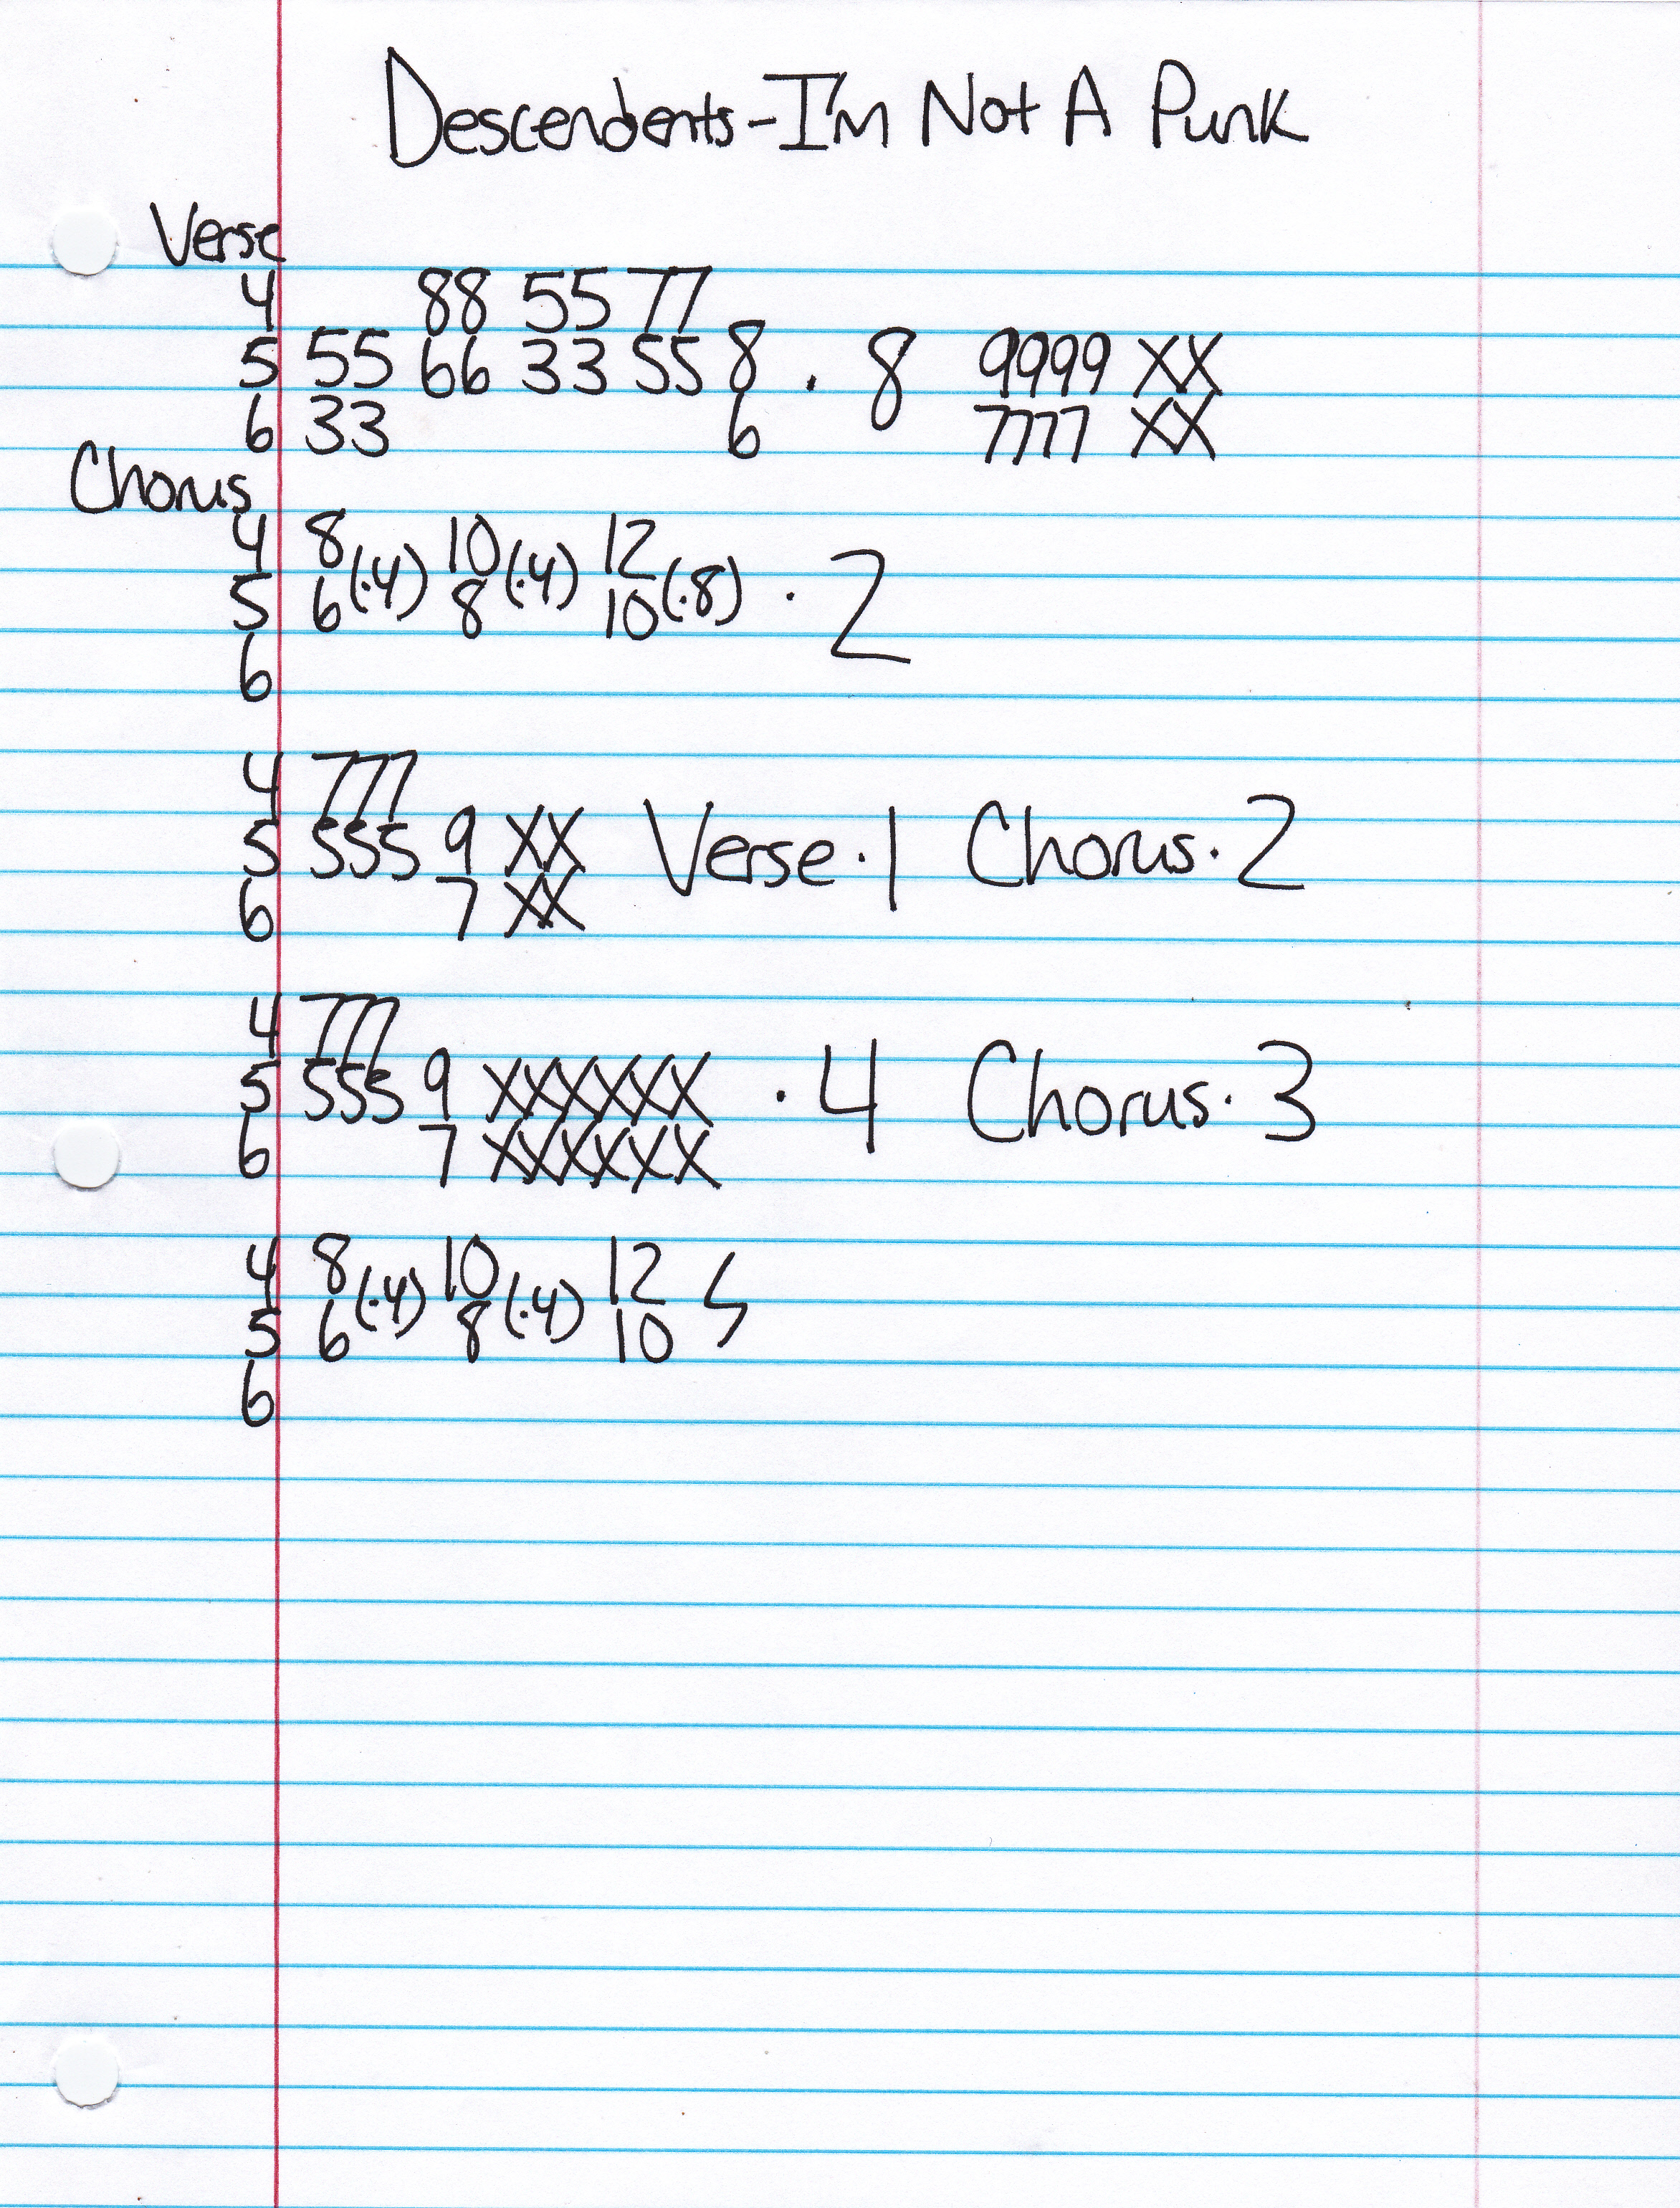 Descendents-I'm Not A Punk
Verse
4 88 55 77
5 55 66 33 55 8 . 8 9999 XX
6 33 6 7777 XX
Chorus
4 8 (·4) 10 (·4) 12 (·8) · 2
5 6 8 10
6
4 777
5 555 9 XX Verse·1 Chorus·2
6 7 XX
4 777
5 555 9 XXXXXX ·4 Chorus·3
6 7 XXXXXX
4 8 (·4) 10 (·4) 12
5 6 8 10
6